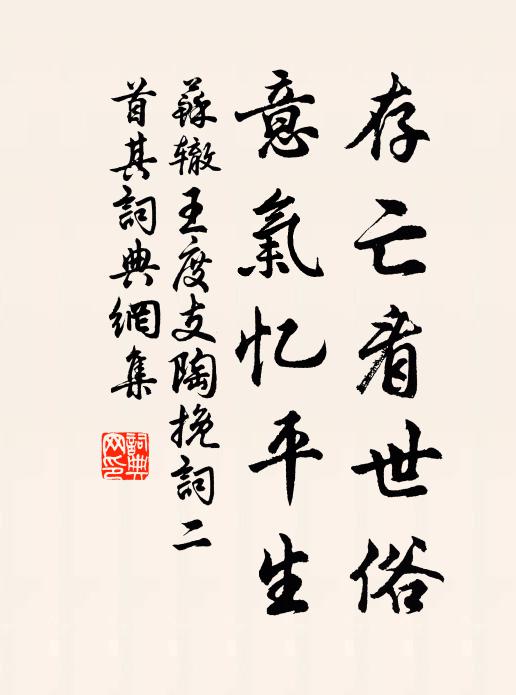 存亡看世俗
意氣忆平生
蘇辙王度支陶挽詞二
首其詞典網集
詞典网印